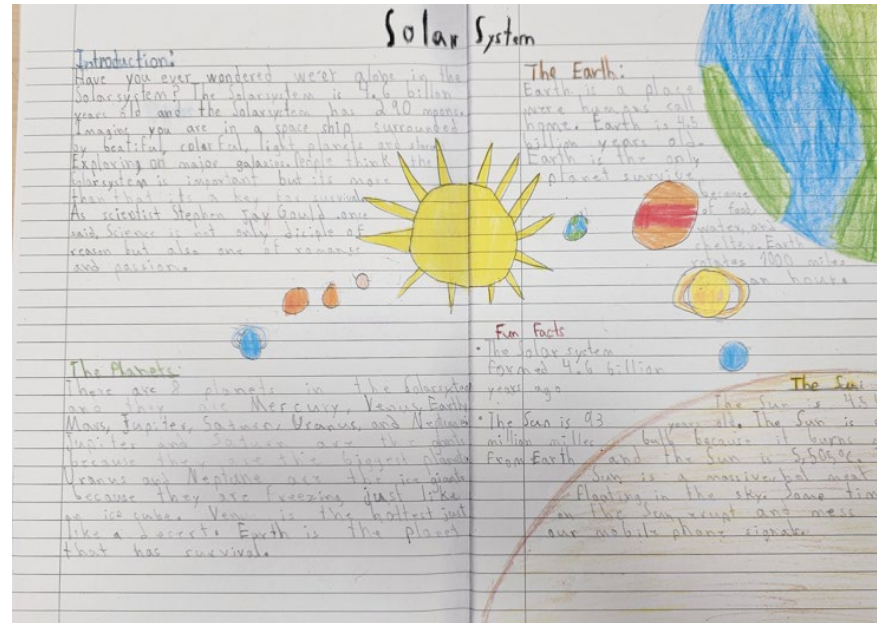 Solar System
Introduction:
Have you ever wondered we'er alone in the
Solarsystem? The Solarsystem is 4.6 billon
years old and the Solarsystem has 290 moons.
Imaging you are in a space ship surrounded
by beatiful, colorful, light planets and stars
Exploring on major galaxies. People think the
Solarsystem is important but its more
than that its a key for survival.
As scientist Stephen Jay Gould once
said, Science is not only diciple of
reason but also one of romance
and passion.
The Planets:
There are 8 planets in the Solarsystem
and they are Mercury, Venus, Earth,
Mars, Jupiter, Saturn, Uranus, and Neptune
Jupiter and Saturn are the giants
because they are the biggest planets
Uranus and Neptune are the ice giants
because they are freezing just like
an ice cube. Venus is the hottest just
like a desert. Earth is the planet
that has survival.
The Earth:
Earth is a place
were humans call
home. Earth is 4.5
billion years old.
Earth is the only
planet survive
because
of food,
water, and
shelter. Earth
rotates 1000 miles
an hour.
Fun Facts
• The Solar system
formed 4.6 billion
years ago
• The Sun is 93
million milles
From Earth
The Sun
The Sun is 4.5
years old. The Sun is
bulb because it burns
and the Sun is 5,505°C.
Sun is a massive
floating in the sky. Some
on the Sun and mess
our mobile phone signals.